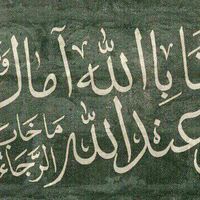 نا بالله آمال و
عند الله ما خاب الرجاء